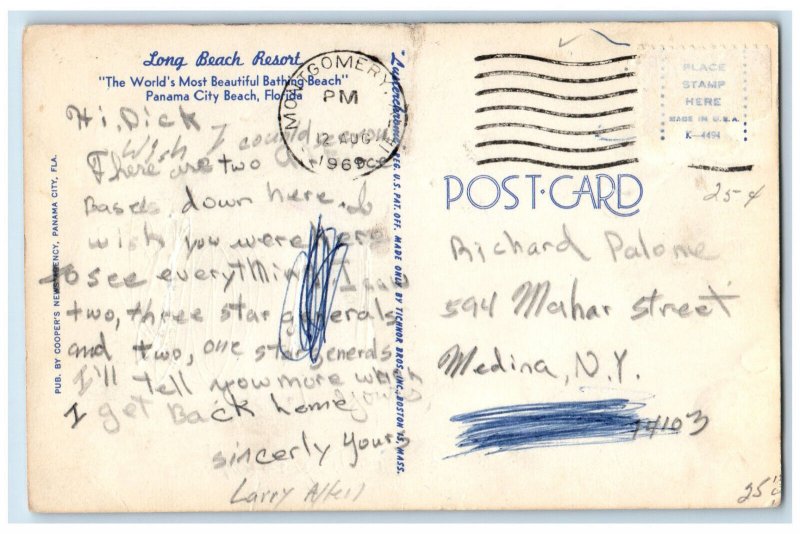 Long Beach Resort
"The World's Most Beautiful Bathing Beach"
Panama City Beach, Florida
Hi, Dick
Wish I could
There are two
Bases down here. I
wish you were here
to see everything I saw
two, three star generals
and two, one star generals
I'll tell you more when
I get Back home
sincerly yours
Larry
PUB. BY COOPER'S NEWS AGENCY, PANAMA CITY, FLA.
"Lusterchrome" REG. U.S. PAT. OFF. MADE ONLY BY TICHNOR BROS., INC., BOSTON 15, MASS.
MONTGOMERY,
PM
12 AUG
1969
PLACE
STAMP
HERE
MADE IN U.S.A.
K-4494
POST-CARD
25¢
Richard Palone
594 Mahar Street
Medina, N.Y.
14103
25¢